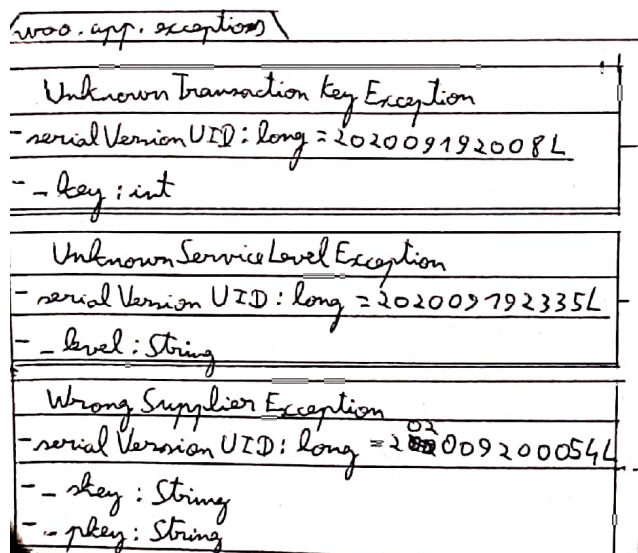 woo.app.exceptions
UnknownTransactionKeyException
- serialVersionUID: long = 202009192008L
- _key: int
UnknownServiceLevelException
- serialVersionUID: long = 202009192335L
- _level: String
WrongSupplierException
- serialVersionUID: long = 202009200054L
- _skey: String
- _pkey: String